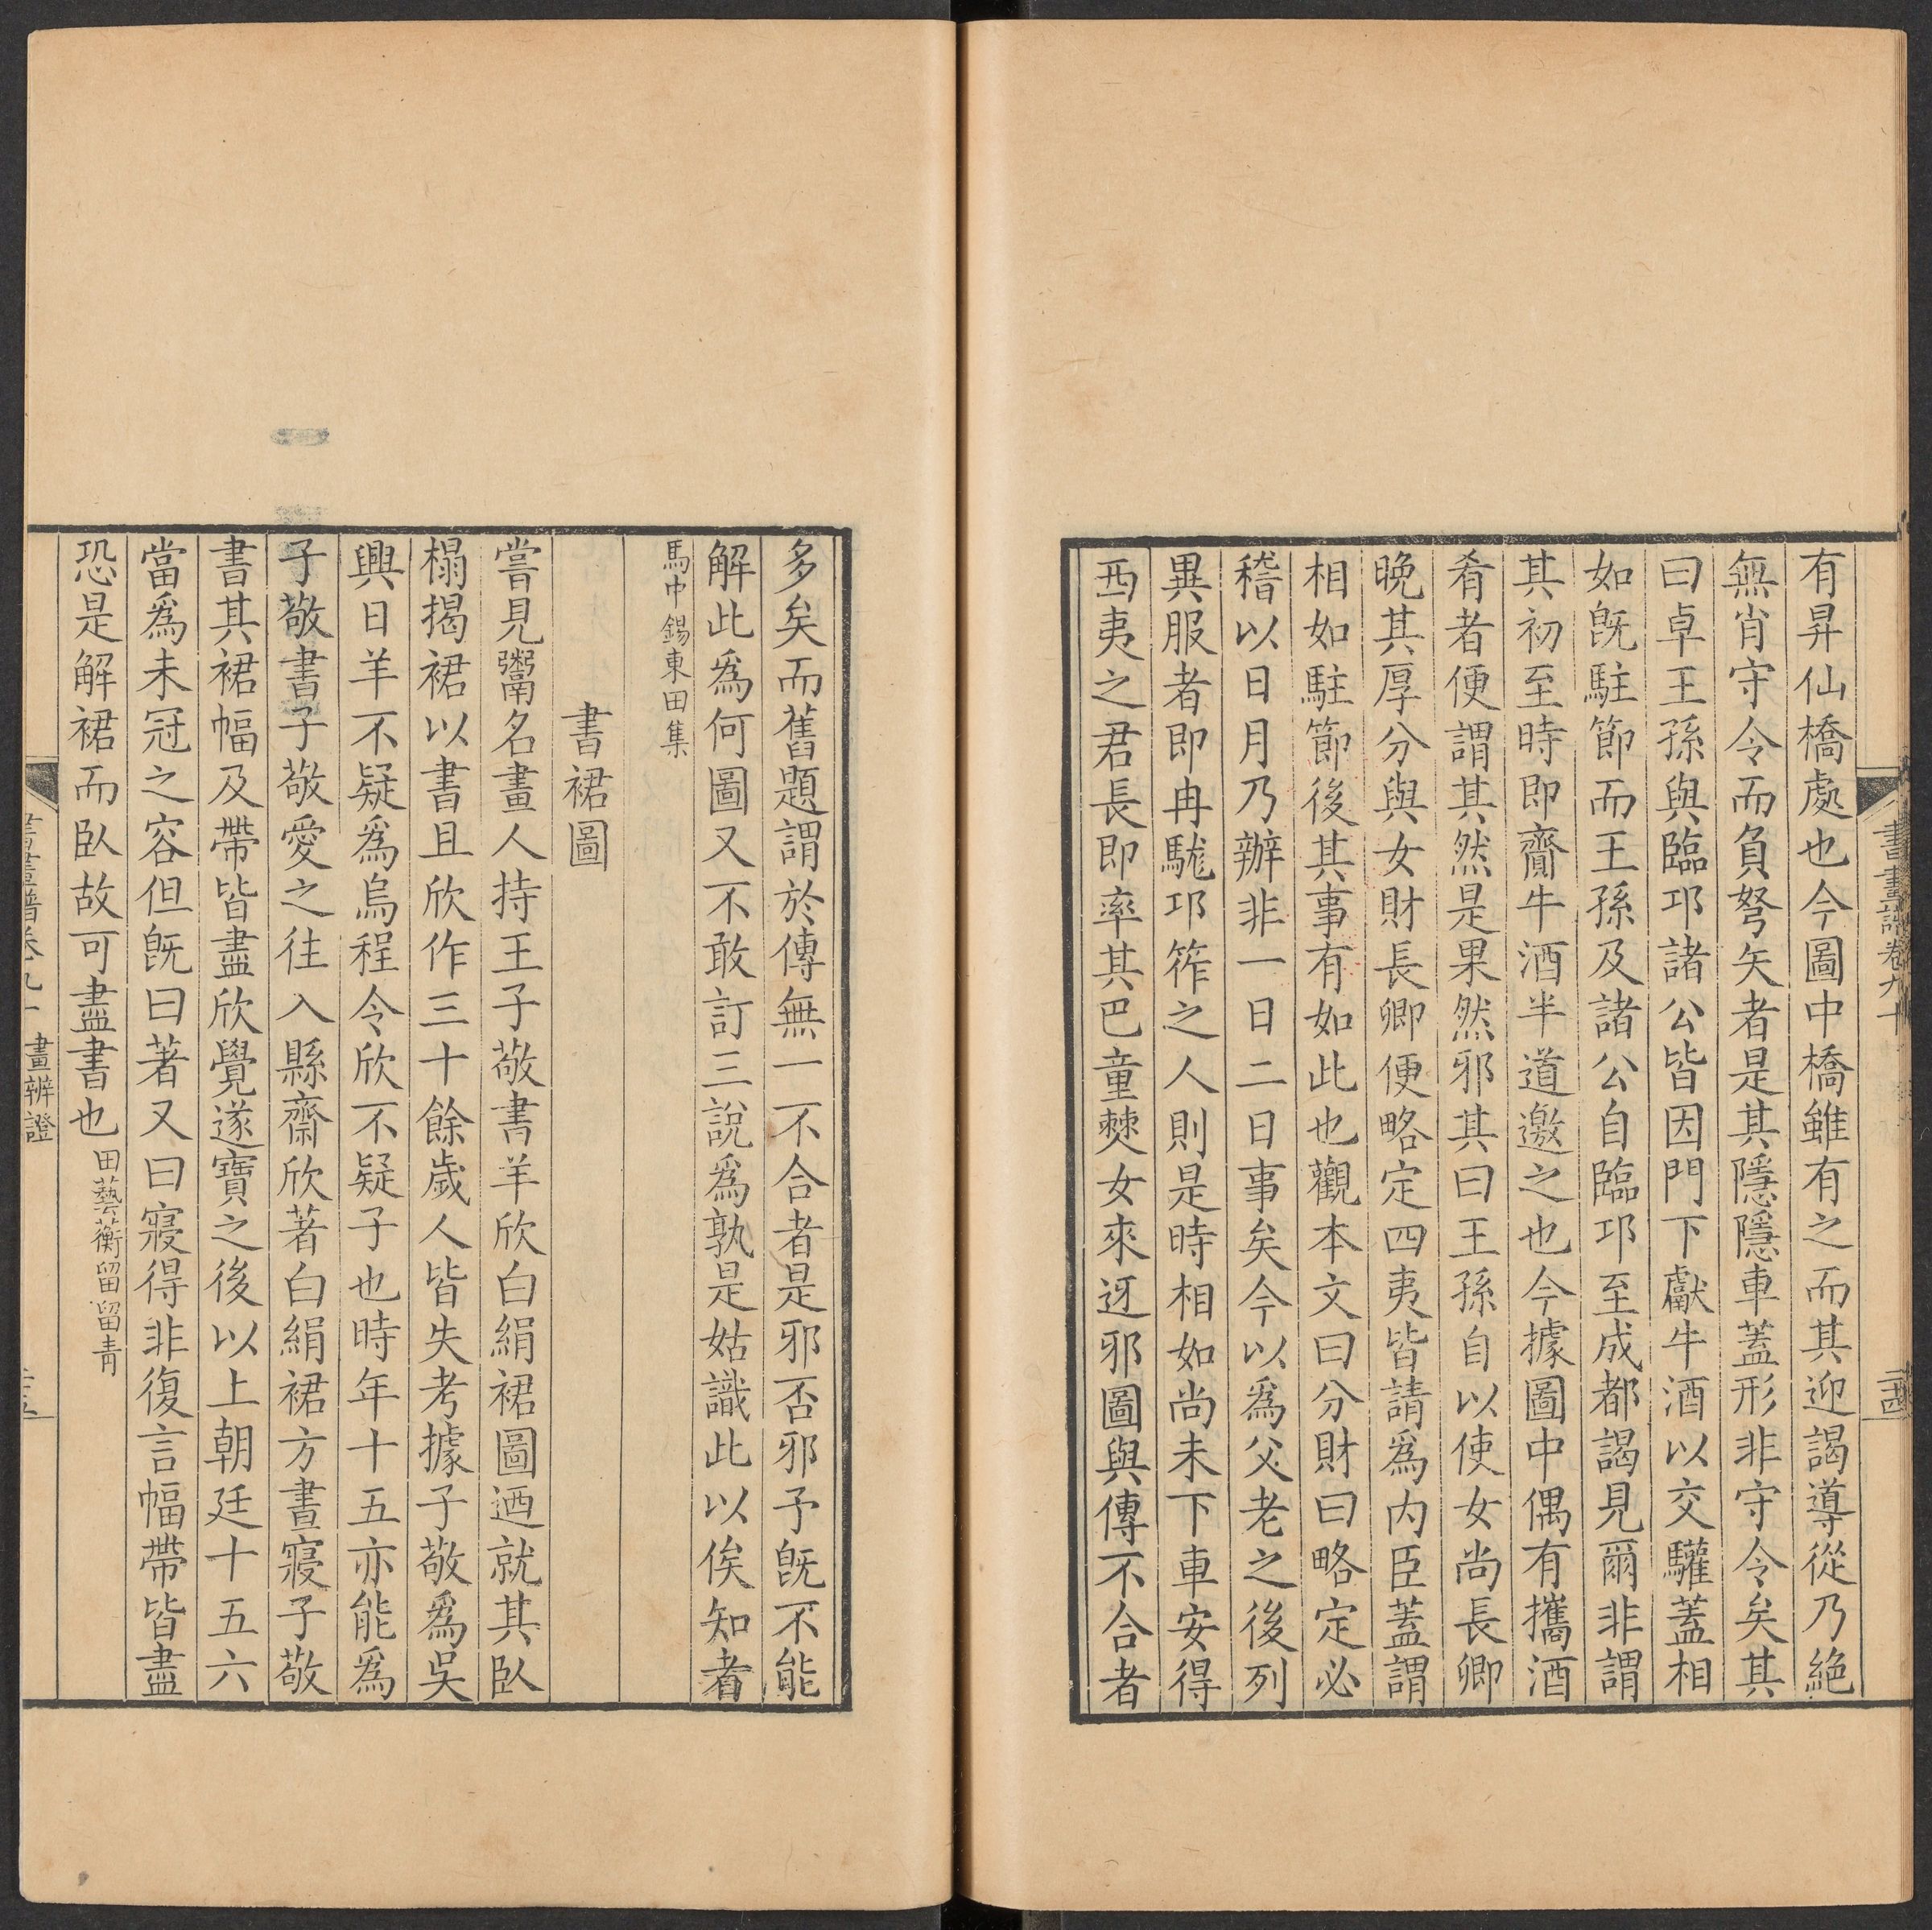 書畫譜卷九十
有昇仙橋處也今圖中橋雖有之而其迎謁導從乃絶
無肖守令而負弩矢者是其隱隱車蓋形非守令矣其
曰卓王孫與臨邛諸公皆因門下獻牛酒以交驩蓋相
如旣駐節而王孫及諸公自臨邛至成都謁見爾非謂
其初至時即齎牛酒半道邀之也今據圖中偶有攜酒
肴者便謂其然是果然邪其曰王孫自以使女尚長卿
晚其厚分與女財長卿便略定四夷皆請爲内臣蓋謂
相如駐節後其事有如此也觀本文曰分財曰略定必
稽以日月乃辦非一日二日事矣今以爲父老之後列
異服者即冉駹邛筰之人則是時相如尚未下車安得
西夷之君長即率其巴童僰女來迓邪圖與傳不合者
多矣而舊題謂於傳無一不合者是邪否邪予旣不能
解此爲何圖又不敢訂三說爲孰是姑識此以俟知者
馬中錫東田集
書裙圖
嘗見鬻名畫人持王子敬書羊欣白絹裙圖迺就其臥
榻揭裙以書且欣作三十餘歲人皆失考據子敬爲吳
興日羊不疑爲烏程令欣不疑子也時年十五亦能爲
子敬書子敬愛之往入縣齋欣著白絹裙方晝寢子敬
書其裙幅及帶皆盡欣覺遂寶之後以上朝廷十五六
當爲未冠之容但旣曰著又曰寢得非復言幅帶皆盡
恐是解裙而臥故可盡書也 田藝蘅留留青
書畫譜卷九十 畫辨證